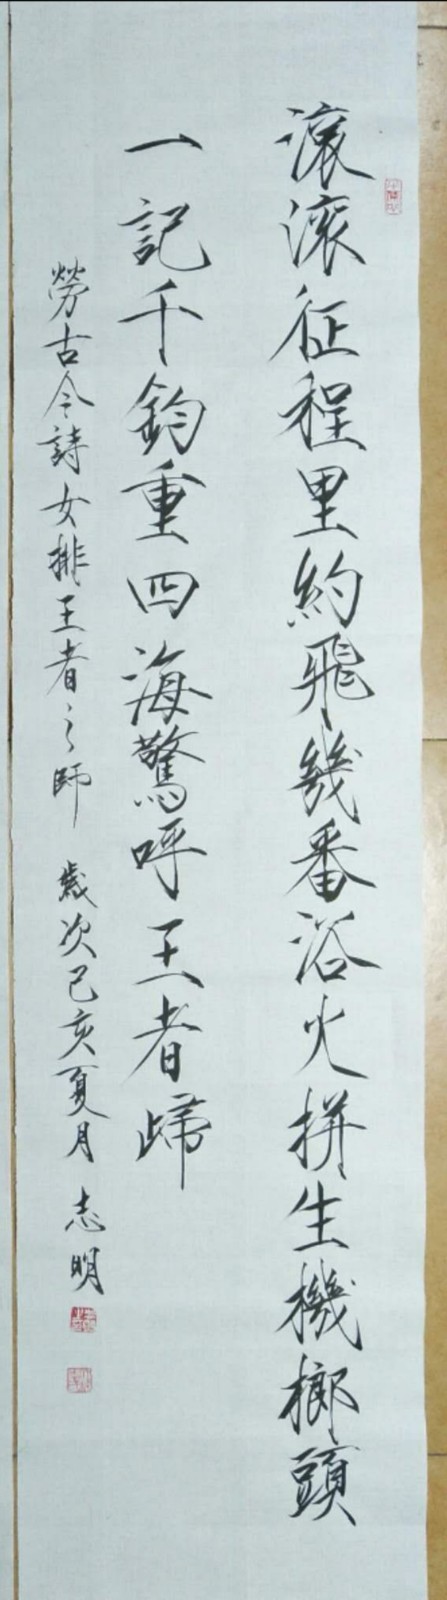 滾滾征程里約飛幾番浴火拼生機榔頭
一記千鈞重四海驚呼王者歸
勞古今詩女排王者之師 歲次己亥夏月 志明